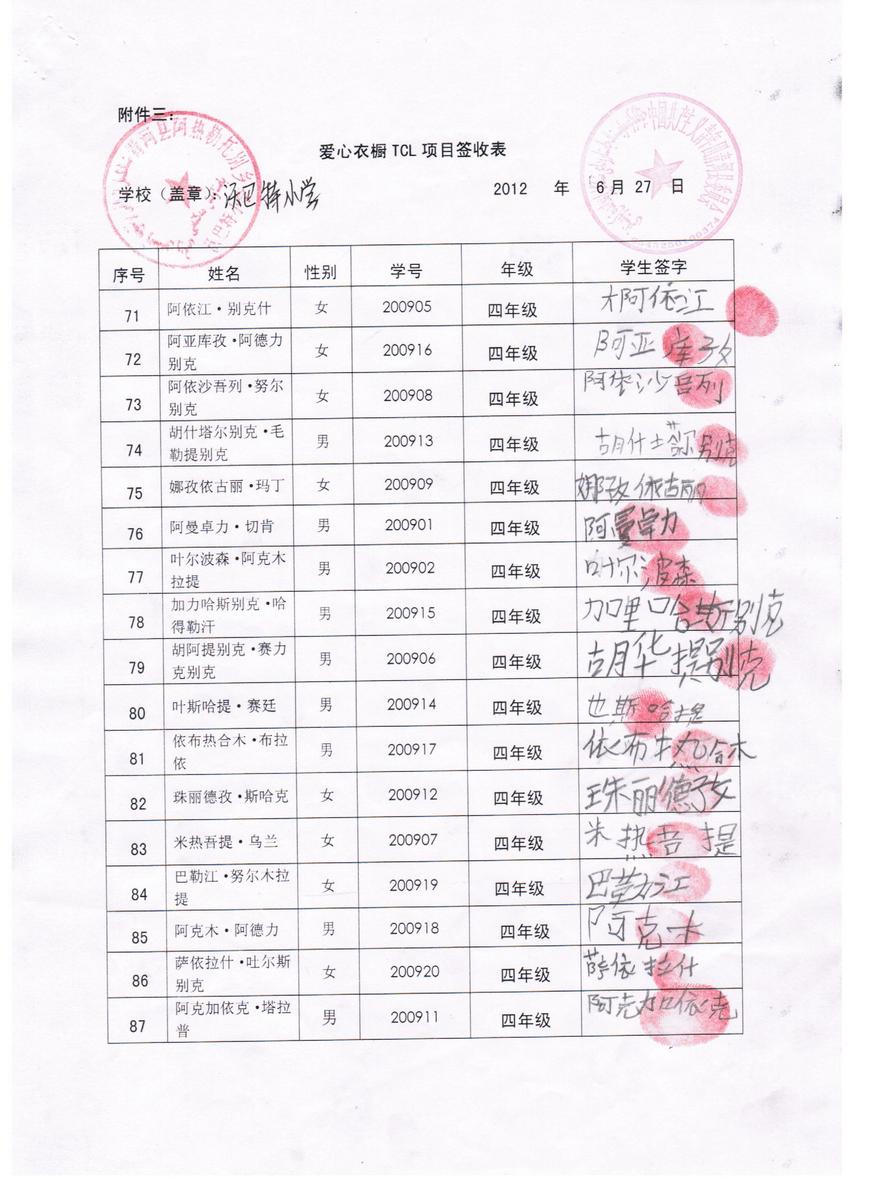 附件三：
爱心衣橱 TCL 项目签收表
学校（盖章）：沃巴特小学 2012 年 6月 27 日
序号 姓名 性别 学号 年级 学生签字
71 阿依江·别克什 女 200905 四年级 阿依江
72 阿亚库孜·阿德力 女 200916 四年级 阿亚库孜
别克
73 阿依沙吾列·努尔 女 200908 四年级 阿依沙吾列
别克
74 胡什塔尔别克·毛 男 200913 四年级 胡什塔尔别克
勒提别克
75 娜孜依古丽·玛丁 女 200909 四年级 娜孜依古丽
76 阿曼卓力·切肯 男 200901 四年级 阿曼卓力
77 叶尔波森·阿克木 男 200902 四年级 叶尔波森
拉提
78 加力哈斯别克·哈 男 200915 四年级 加哩哈斯别克
得勒汗
79 胡阿提别克·赛力 男 200906 四年级 胡华提别克
克别克
80 叶斯哈提·赛廷 男 200914 四年级 也斯哈提
81 依布热合木·布拉 男 200917 四年级 依布热合木
依
82 珠丽德孜·斯哈克 女 200912 四年级 珠丽德孜
83 米热吾提·乌兰 女 200907 四年级 米热吾提
84 巴勒江·努尔木拉 女 200919 四年级 巴勒江
提
85 阿克木·阿德力 男 200918 四年级 阿克木
86 萨依拉什·吐尔斯 女 200920 四年级 萨依拉什
别克
87 阿克加依克·塔拉 男 200911 四年级 阿克加依克
普